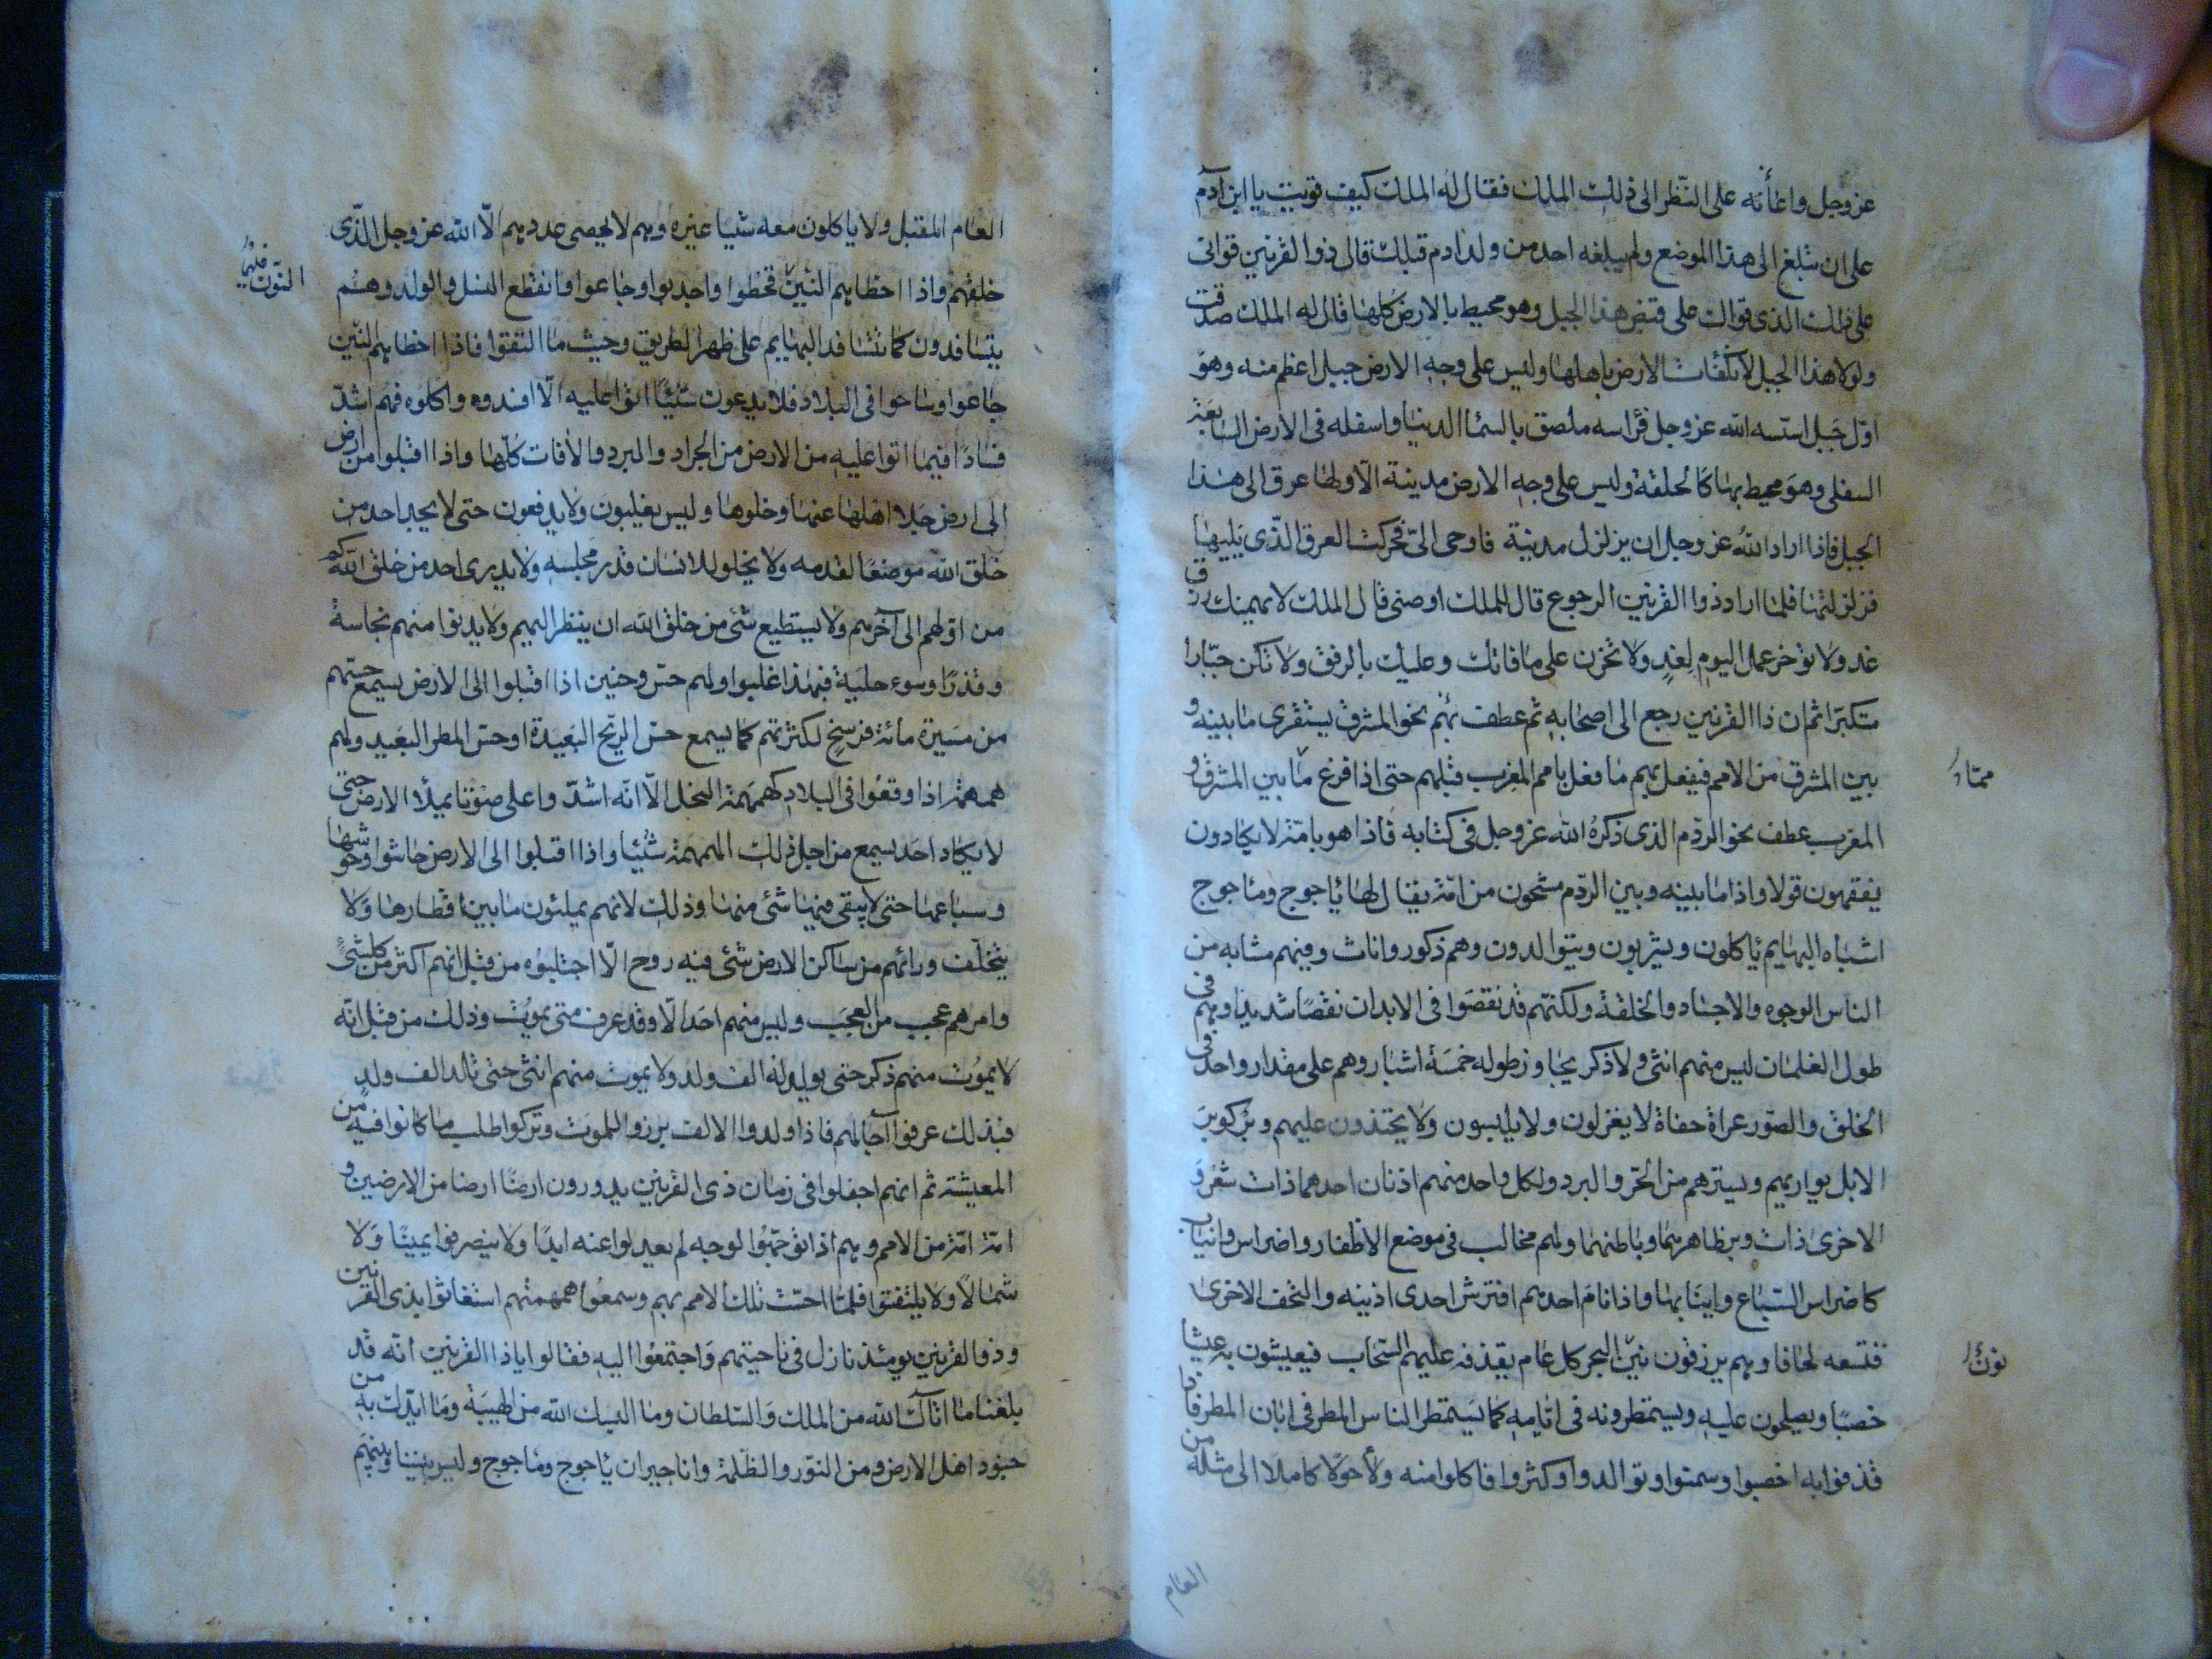 عز وجل واعانه على النظر الى ذلك الملك فقال له الملك كيف قويت يا ابن آدم
على ان تبلغ الى هذا الموضع ولم يبلغه احد من ولد ادم قبلك قال ذوا القرنين قوانى
على ذلك الذى قواك على قبض هذا الجبل وهو محيط بالارض كلها قال له الملك صدقت
ولولا هذا الجبل لانكفأت الارض باهلها وليس على وجه الارض جبل اعظم منه وهو
اول جبل اسسه الله عز وجل فرأسه ملصق بالسماء الدنيا واسفله فى الارض السابعة
السفلى وهو محيط بها كالحلقة وليس على وجه الارض مدينة الا ولها عرق الى هذا
الجبل فاذا اراد الله عز وجل ان يزلزل مدينة فاوحى الىّ فحركت العرق الذى يليها
فزلزلتها فلما اراد ذوا القرنين الرجوع قال للملك اوصنى قال الملك لا يهمنك رزق
غد ولا تؤخر عمل اليوم لغد ولا تحزن على ما فاتك وعليك بالرفق ولا تكن جبارا
متكبرا ثم ان ذا القرنين رجع الى اصحابه ثم عطف بهم نحو المشرق يستقرى ما بينه و
بين المشرق من الامم فيفعل بهم ما فعل بامم المغرب قبلهم حتى اذا فرغ ما بين المشرق و
ممّا
المغرب عطف نحو الردم الذى ذكره الله عز وجل فى كتابه فاذا هو بامة لا يكادون
يفقهون قولا واذا ما بينه وبين الردم مشحون من امة يقال لها ياجوج وماجوج
اشباه البهايم ياكلون ويشربون ويتوالدون وهم ذكور واناث وفيهم مشابه من
الناس الوجوه والاجساد والخلقة ولكنهم قد نقصوا فى الابدان نقصا شديدا وهم فى
طول الغلمان ليس منهم انثى ولا ذكر يجاوز طوله خمسة اشبار وهم على مقدار واحد فى
الخلق والصور عراة حفاة لا يغزلون ولا يلبسون ولا يحتذون عليهم وبر كوبر
الابل يواريهم ويسترهم من الحر والبرد ولكل واحد منهم اذنان احدهما ذات شعر و
الاخرى ذات وبر ظاهرهما وباطنهما ولهم مخالب فى موضع الاظفار واضراس وانياب
كاضراس السباع وانيابها واذا نام احدهم افترش احدى اذنيه والتحف الاخرى
فتسعه لحافا وهم يرزقون تنين البحر كل عام يقذفه عليهم السحاب فيعيشون به عيشا
نون
خصبا ويصلحون عليه ويستمطرونه فى ايامه كما يستمطر الناس المطر فى ابان المطر فاذا
قذفوا به اخصبوا وسمنوا وتوالدوا وكثروا فاكلوا منه ولا حولا كاملا الى مثله من
العام
العام المقبل ولا ياكلون معه شيا غيره وهم لا يحصى عددهم الا الله عز وجل الذى
خلقهم واذا اخطاهم التنين قحطوا واجدبوا وجاعوا وانقطع النسل والولد وهم
النون
يتسافدون كما تتسافد البهايم على ظهر الطريق وحيث ما التقوا فاذا اخطاهم التنين
جاعوا وساحوا فى البلاد فلا يدعون شيئا اتوا عليه الا افسدوه واكلوه فهم اشد
فسادا فيما اتوا عليه من الارض من الجراد والبرد والافات كلها واذا اقبلوا من ارض
الى ارض جلا اهلها عنها وخلوها وليس يغلبون ولا يدفعون حتى لا يجد احد من
خلق الله موضعا لقدمه ولا يخلو للانسان قدر مجلسه ولا يدرى احد من خلق الله كم
من اولهم الى آخرهم ولا يستطيع شئ من خلق الله ان ينظر اليهم ولا يدنوا منهم نجاسة
وقذرا وسوء حلية فبهذا غلبوا ولهم حس وحنين اذا اقبلوا الى الارض يسمع حسهم
من مسيرة مائة فرسخ لكثرتهم كما يسمع حس الريح البعيدة او حس المطر البعيد ولهم
همهمة اذا وقعوا فى البلاد كهمهمة النحل الا انه اشد واعلى صوتا يملأ الارض حتى
لا يكاد احد يسمع من اجل ذلك الهمهمة شئيا واذا اقبلوا الى الارض حاشوا وحوشها
وسباعها حتى لا يبقى فيها شئ منها وذلك لانهم يملئون ما بين اقطارها ولا
يتخلف ورائهم من ساكن الارض شئ فيه روح الا اجتلبوه من قبل انهم اكثر من كلشئ
وامرهم عجب من العجب وليس منهم احد الا وقد عرف متى يموت وذلك من قبل انه
لا يموت منهم ذكر حتى يولد له الف ولد ولا يموت منهم انثى حتى تلد الف ولد
فبذلك عرفوا آجالهم فاذا ولدوا الالف برزوا للموت وتركوا طلب ما كانوا فيه من
المعيشة ثم انهم اجفلوا فى زمان ذى القرنين يدورون ارضا ارضا من الارضين و
امة امة من الامم وهم اذا توجهوا لوجه لم يعدلوا عنه ابدا ولا ينصرفوا يمينا ولا
شمالا ولا يلتفتوا فلما احست تلك الامم بهم وسمعوا همهمتهم استغاثوا بذى القرنين
وذو القرنين يومئذ نازل فى ناحيتهم واجتمعوا اليه فقالوا ياذا القرنين انه قد
بلغنا ما اتاك الله من الملك والسلطان وما البسك الله من الهيبة وما ايدك به من
جنود اهل الارض ومن النور والظلمة وانا جيران ياجوج وماجوج وليس بيننا وبينهم